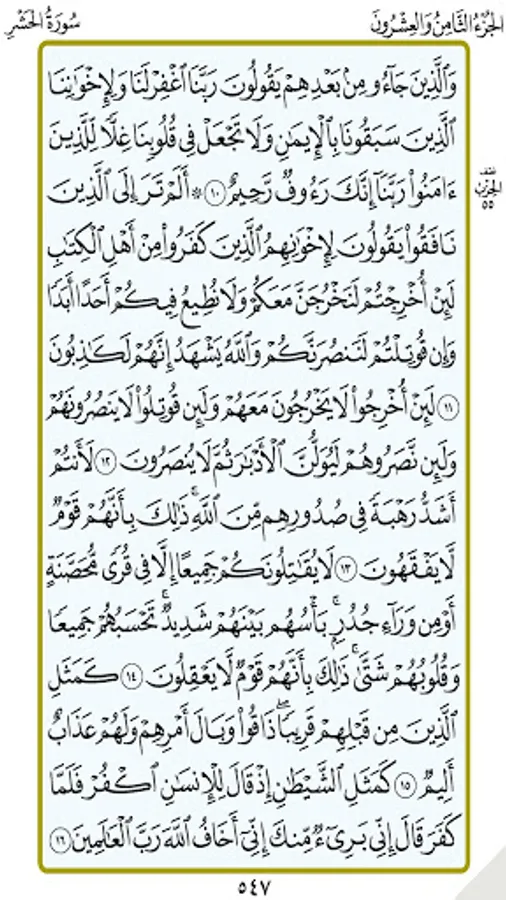 الجزء الثامن والعشرون
سورة الحشر
وَٱلَّذِينَ جَآءُو مِنۢ بَعْدِهِمْ يَقُولُونَ رَبَّنَا ٱغْفِرْ لَنَا وَلِإِخْوَٰنِنَا
ٱلَّذِينَ سَبَقُونَا بِٱلْإِيمَٰنِ وَلَا تَجْعَلْ فِى قُلُوبِنَا غِلًّا لِّلَّذِينَ
ءَامَنُوا۟ رَبَّنَآ إِنَّكَ رَءُوفٌ رَّحِيمٌ ١٠ ۞ أَلَمْ تَرَ إِلَى ٱلَّذِينَ
نصف
الحزب
٥٥
نَافَقُوا۟ يَقُولُونَ لِإِخْوَٰنِهِمُ ٱلَّذِينَ كَفَرُوا۟ مِنْ أَهْلِ ٱلْكِتَٰبِ
لَئِنْ أُخْرِجْتُمْ لَنَخْرُجَنَّ مَعَكُمْ وَلَا نُطِيعُ فِيكُمْ أَحَدًا أَبَدًا
وَإِن قُوتِلْتُمْ لَنَنصُرَنَّكُمْ وَٱللَّهُ يَشْهَدُ إِنَّهُمْ لَكَٰذِبُونَ
١١ لَئِنْ أُخْرِجُوا۟ لَا يَخْرُجُونَ مَعَهُمْ وَلَئِن قُوتِلُوا۟ لَا يَنصُرُونَهُمْ
وَلَئِن نَّصَرُوهُمْ لَيُوَلُّنَّ ٱلْأَدْبَٰرَ ثُمَّ لَا يُنصَرُونَ ١٢ لَأَنتُمْ
أَشَدُّ رَهْبَةً فِى صُدُورِهِم مِّنَ ٱللَّهِ ۚ ذَٰلِكَ بِأَنَّهُمْ قَوْمٌ
لَّا يَفْقَهُونَ ١٣ لَا يُقَٰتِلُونَكُمْ جَمِيعًا إِلَّا فِى قُرًى مُّحَصَّنَةٍ
أَوْ مِن وَرَآءِ جُدُرٍۭ ۚ بَأْسُهُم بَيْنَهُمْ شَدِيدٌ ۚ تَحْسَبُهُمْ جَمِيعًا
وَقُلُوبُهُمْ شَتَّىٰ ۚ ذَٰلِكَ بِأَنَّهُمْ قَوْمٌ لَّا يَعْقِلُونَ ١٤ كَمَثَلِ
ٱلَّذِينَ مِن قَبْلِهِمْ قَرِيبًا ۖ ذَاقُوا۟ وَبَالَ أَمْرِهِمْ وَلَهُمْ عَذَابٌ
أَلِيمٌ ١٥ كَمَثَلِ ٱلشَّيْطَٰنِ إِذْ قَالَ لِلْإِنسَٰنِ ٱكْفُرْ فَلَمَّا
كَفَرَ قَالَ إِنِّى بَرِىٓءٌ مِّنكَ إِنِّىٓ أَخَافُ ٱللَّهَ رَبَّ ٱلْعَٰلَمِينَ ١٦
٥٤٧